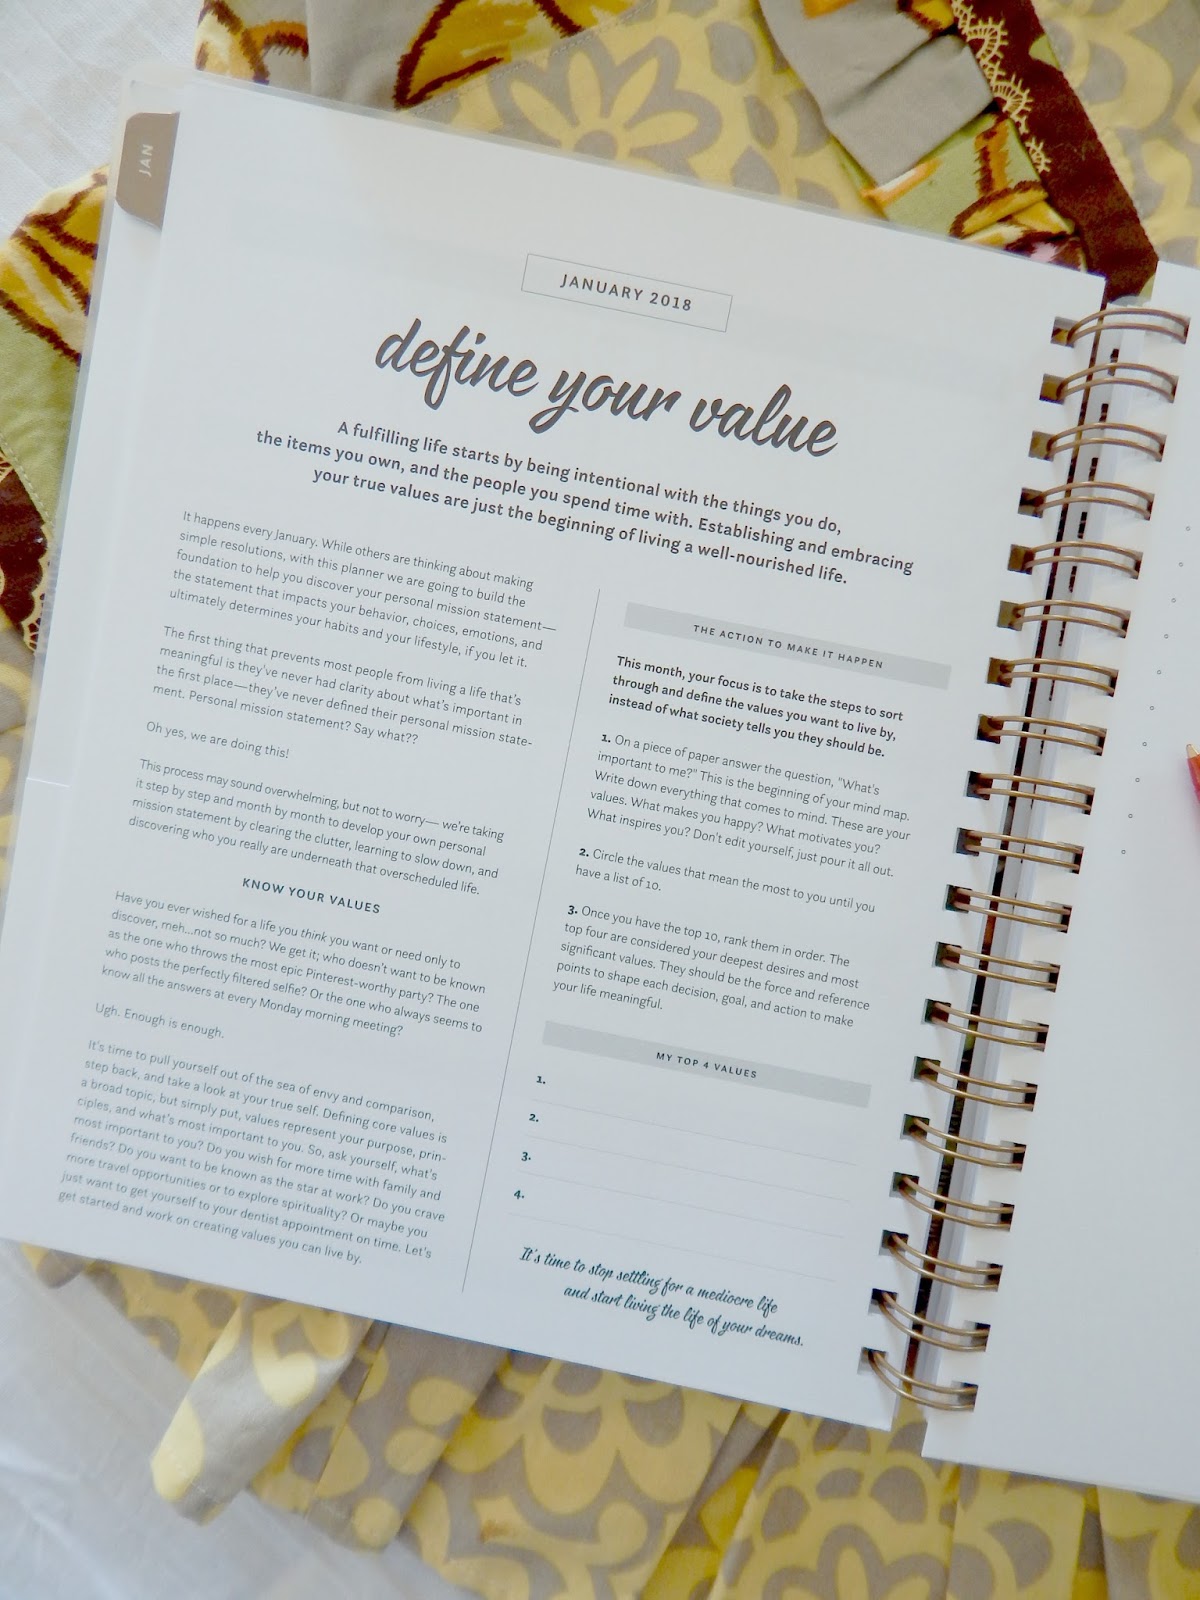 JAN
JANUARY 2018
define your value
A fulfilling life starts by being intentional with the things you do,
the items you own, and the people you spend time with. Establishing and embracing
your true values are just the beginning of living a well-nourished life.
It happens every January. While others are thinking about making
simple resolutions, with this planner we are going to build the
foundation to help you discover your personal mission statement—
the statement that impacts your behavior, choices, emotions, and
ultimately determines your habits and your lifestyle, if you let it.
The first thing that prevents most people from living a life that's
meaningful is they've never had clarity about what's important in
the first place—they've never defined their personal mission state-
ment. Personal mission statement? Say what??
Oh yes, we are doing this!
This process may sound overwhelming, but not to worry— we're taking
it step by step and month by month to develop your own personal
mission statement by clearing the clutter, learning to slow down, and
discovering who you really are underneath that overscheduled life.
KNOW YOUR VALUES
Have you ever wished for a life you think you want or need only to
discover, meh...not so much? We get it; who doesn't want to be known
as the one who throws the most epic Pinterest-worthy party? The one
who posts the perfectly filtered selfie? Or the one who always seems to
know all the answers at every Monday morning meeting?
Ugh. Enough is enough.
It's time to pull yourself out of the sea of envy and comparison,
step back, and take a look at your true self. Defining core values is
a broad topic, but simply put, values represent your purpose, prin-
ciples, and what's most important to you. So, ask yourself, what's
most important to you? Do you wish for more time with family and
friends? Do you want to be known as the star at work? Do you crave
more travel opportunities or to explore spirituality? Or maybe you
just want to get yourself to your dentist appointment on time. Let's
get started and work on creating values you can live by.
THE ACTION TO MAKE IT HAPPEN
This month, your focus is to take the steps to sort
through and define the values you want to live by,
instead of what society tells you they should be.
1. On a piece of paper answer the question, "What's
important to me?" This is the beginning of your mind map.
Write down everything that comes to mind. These are your
values. What makes you happy? What motivates you?
What inspires you? Don't edit yourself, just pour it all out.
2. Circle the values that mean the most to you until you
have a list of 10.
3. Once you have the top 10, rank them in order. The
top four are considered your deepest desires and most
significant values. They should be the force and reference
points to shape each decision, goal, and action to make
your life meaningful.
MY TOP 4 VALUES
1.
2.
3.
4.
It's time to stop settling for a mediocre life
and start living the life of your dreams.